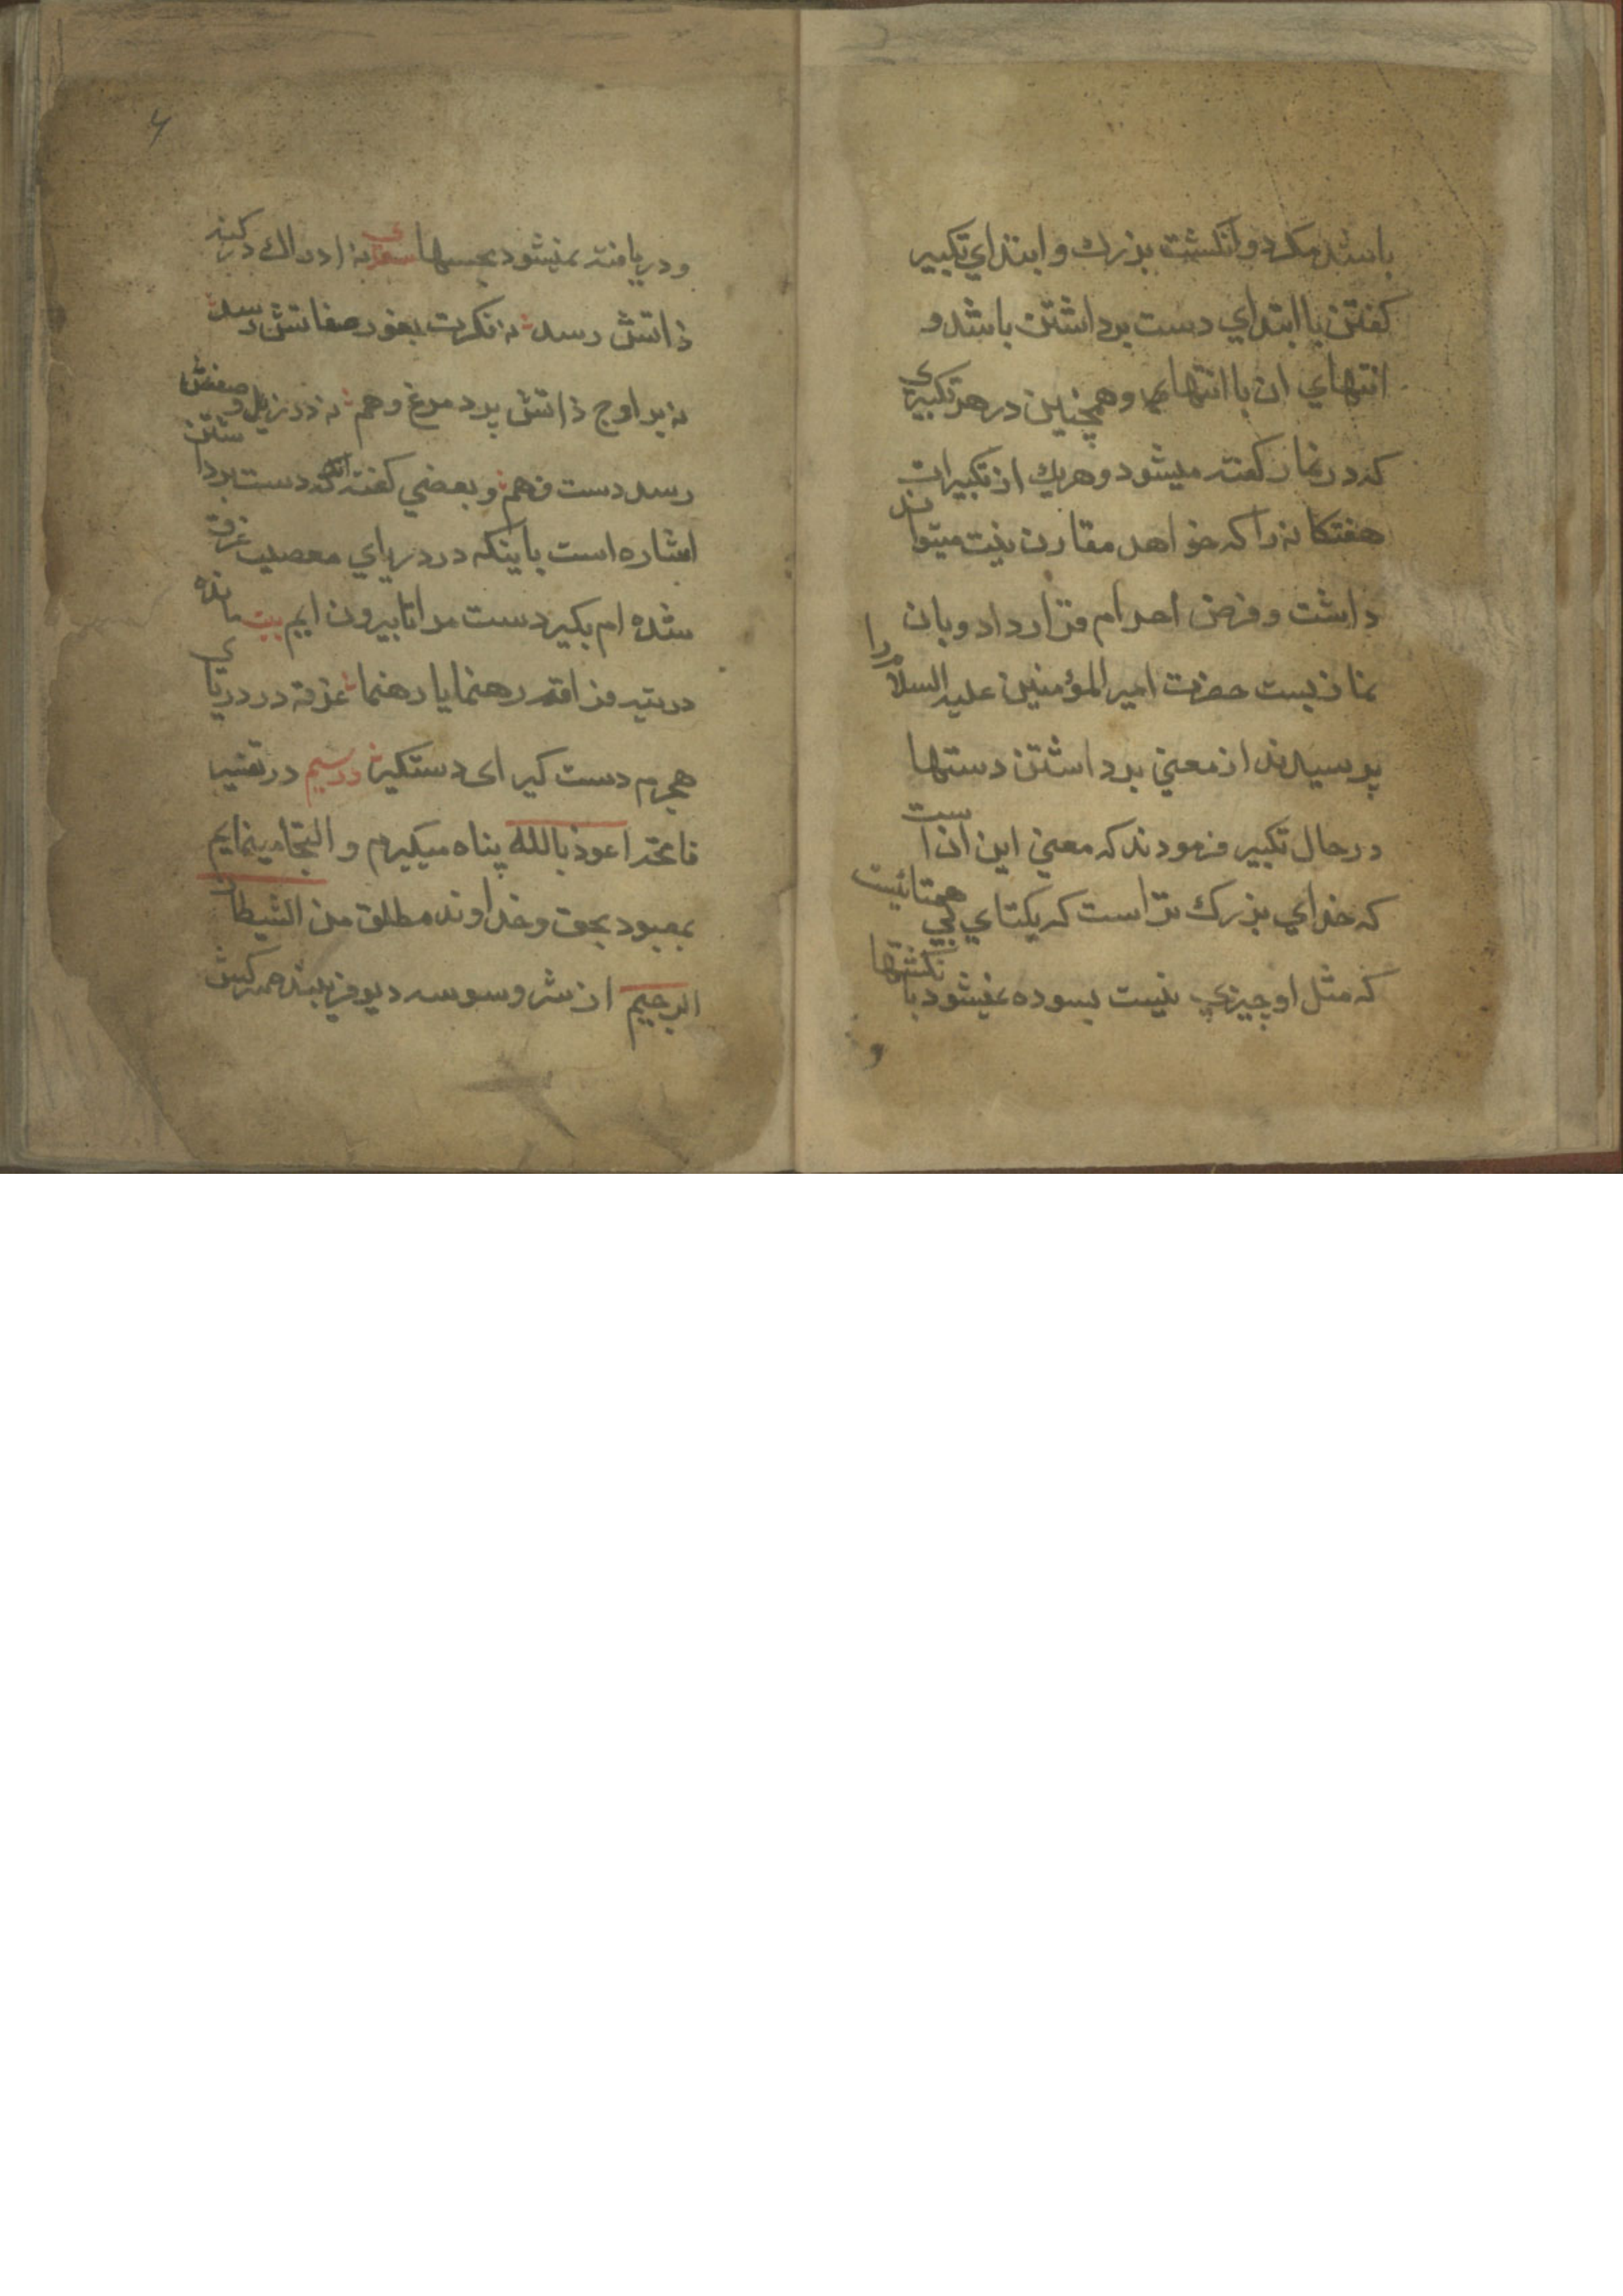 باشد مكر دو انكشت بزرك و ابتداي تكبير
كفتن با ابتداي دست برداشتن باشد و
انتهاي ان با انتهاي و همچنين در هر تكبيري
كه در نماز كفته ميشود و هريك از تكبيرات
هفتكانه را كه خواهد مقارن نيت ميتواند
داشت و فرض احرام قرار داد و بان
نماز بست حضرت امير المؤمنين عليه السلام را
پرسيدند از معني برداشتن دستها
در حال تكبير فرمودند كه معني اين ان است
كه خداي بزرك تر است كه يكتاي بي همتائيست
كه مثل او چيزي نيست بسوده نميشود با نكشتها
و
و دريافته نميشود بحسها نه ادراك در كنه
ذاتش رسد نه فكرت بغور صفاتش رسد
نه بر اوج ذاتش پرد مرغ وهم نه در ذيل وصفش
رسد دست فهم و بعضي كفته اند كه دست برداشتن
اشاره است باينكه در درياي معصيت غرق
شده ام بكير دست مرا تا بيرون ايم بيت مانده
در تيه فراقم رهنمايا رهنما غرقه در درياي
هجرم دست كير اى دستكير در تقيه
فاتحه اعوذ بالله پناه ميكيرم و التجا مينمايم
بمعبود بحق و خداوند مطلق من الشيطان
الرجيم از شر وسوسه ديو فريبنده سركش